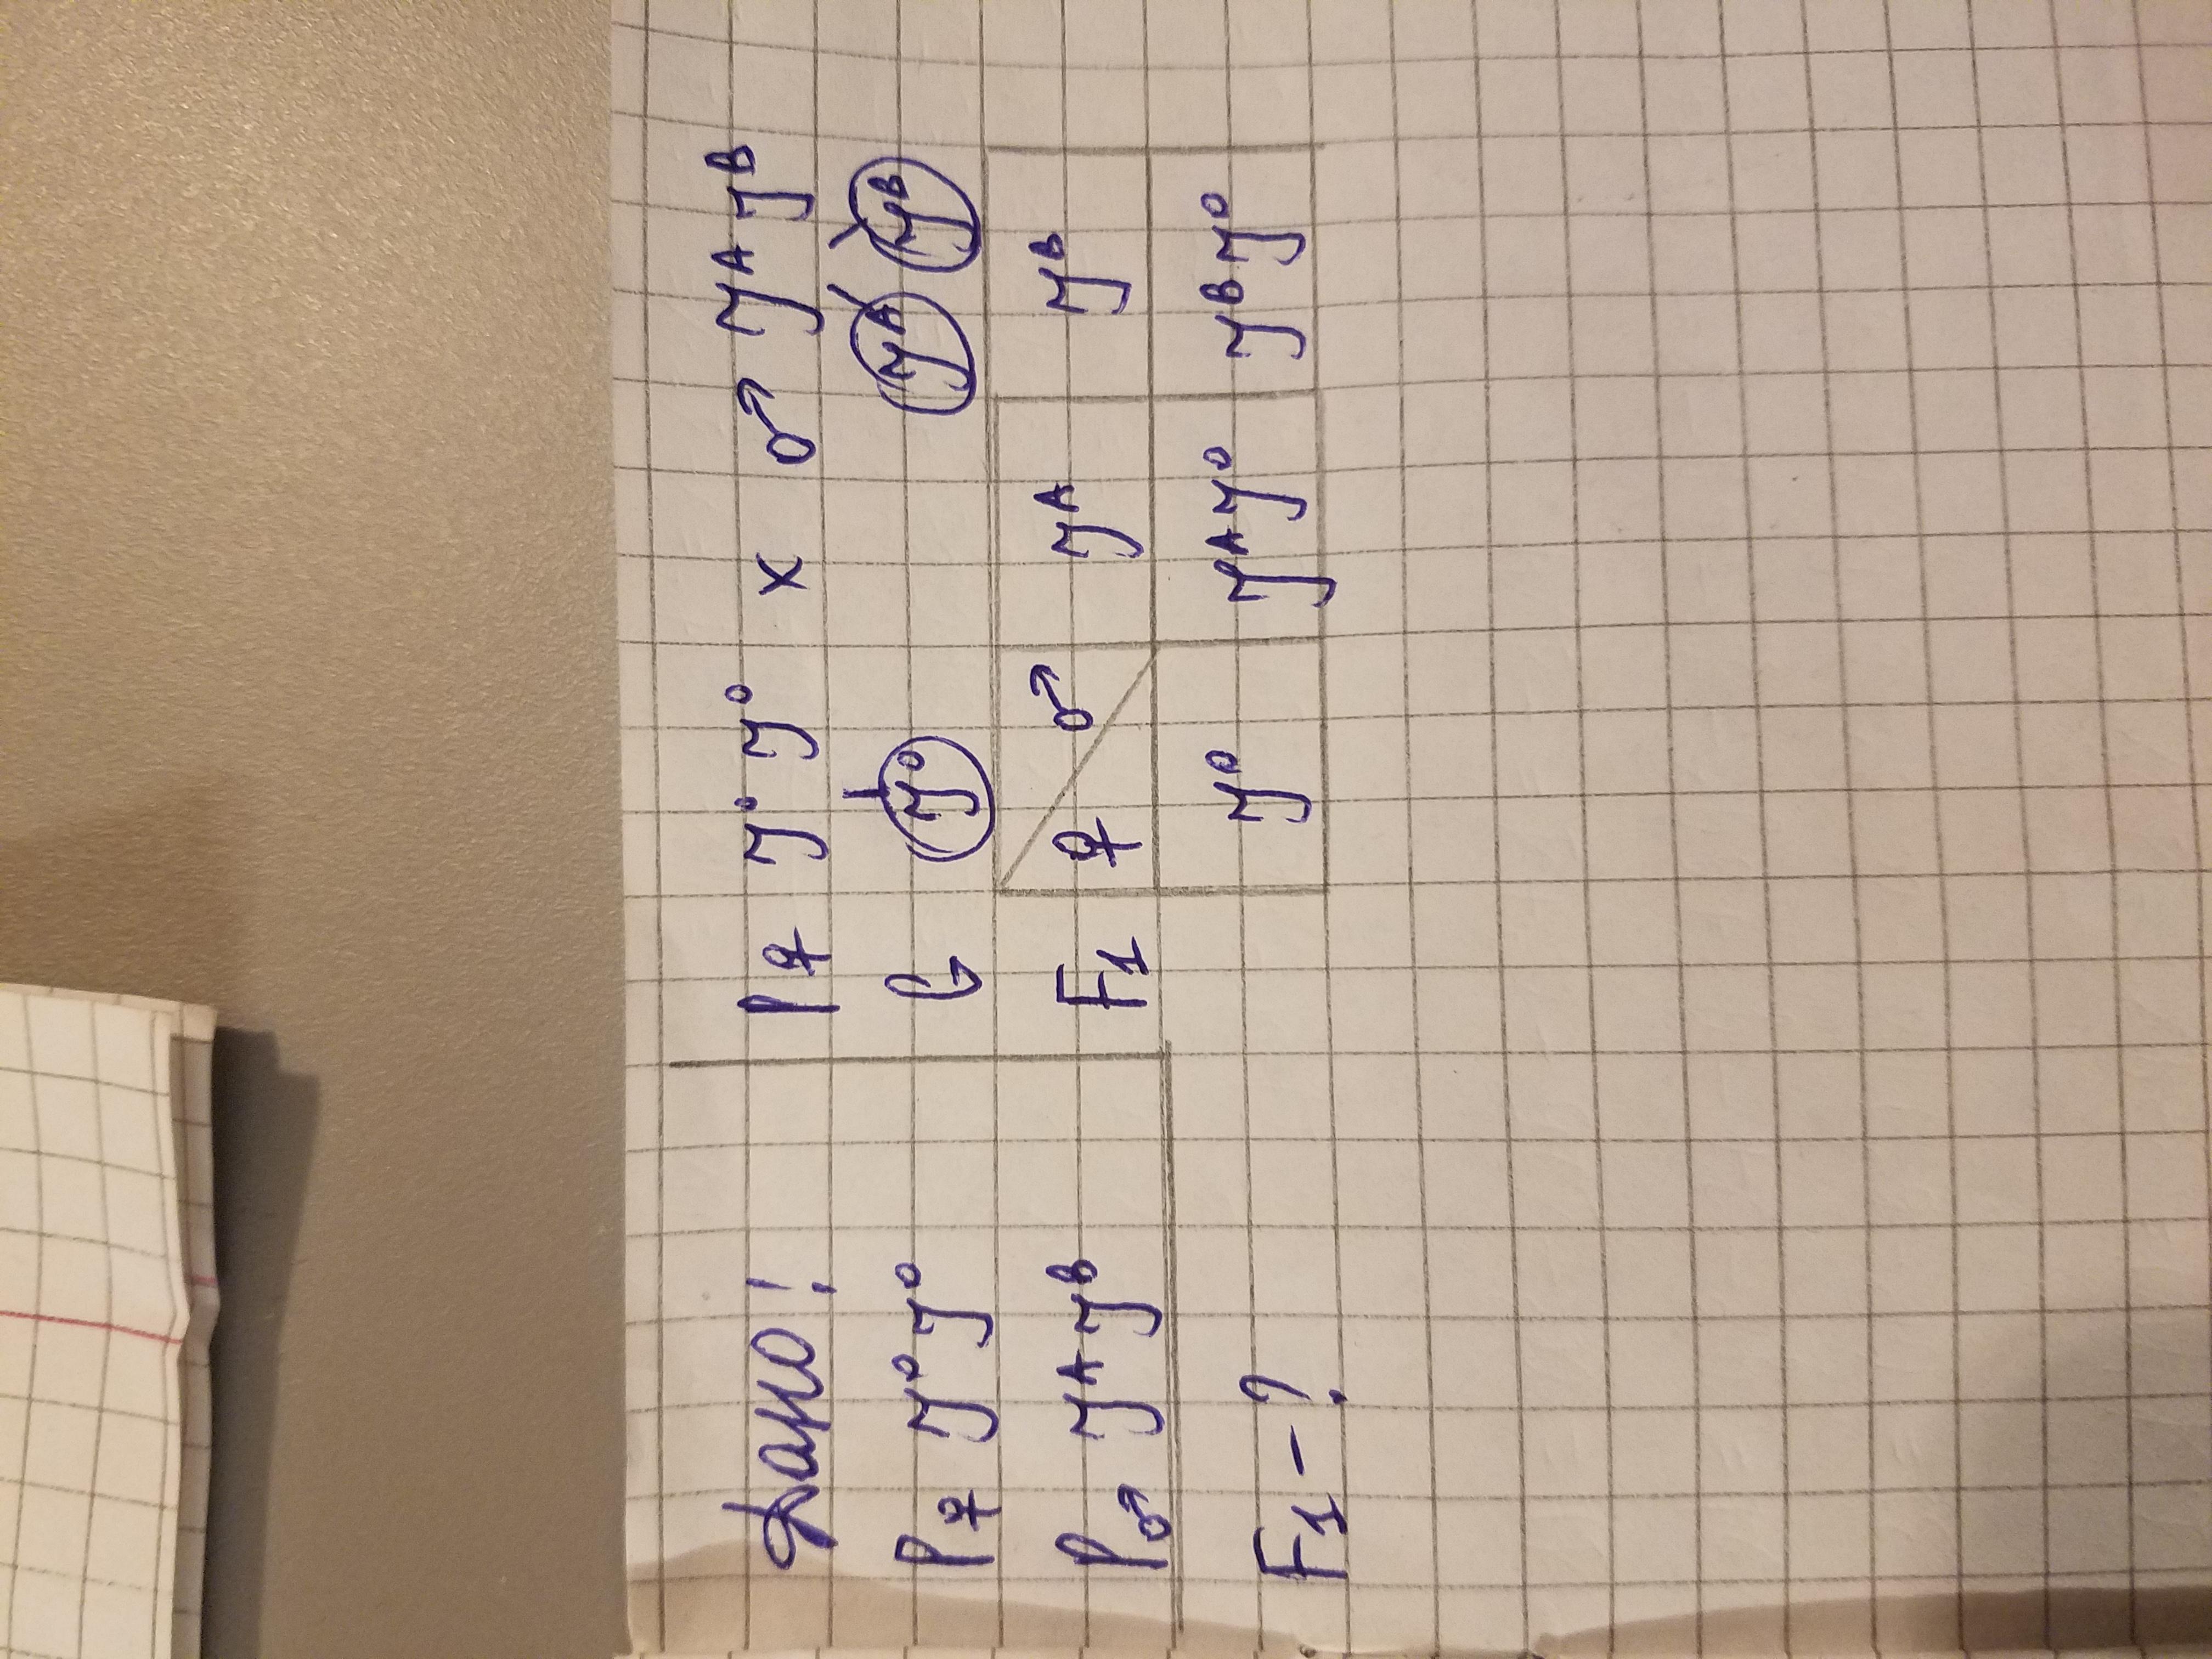 Дано!
P♀ J⁰J⁰
P♂ JᴬJᴮ
F1-?
P♀ J⁰J⁰ x ♂ JᴬJᴮ
G J⁰ Jᴬ Jᴮ
F1 ♀ ♂ Jᴬ Jᴮ
J⁰ JᴬJ⁰ JᴮJ⁰